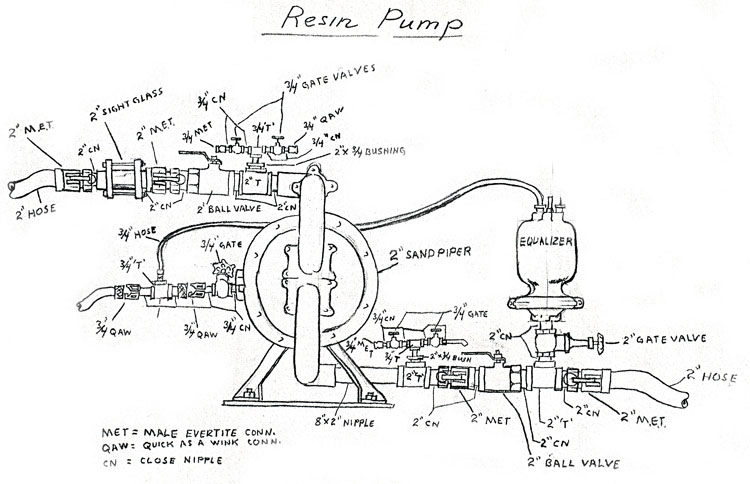 Resin Pump
3/4" GATE VALVES
3/4" CN
2" SIGHT GLASS
2" M.E.T.
2" M.E.T.
3/4 MET
3/4 "T"
3/4" QAW
3/4" CN
2" CN
2" x 3/4 BUSHING
2" T
2" HOSE
2" CN
2" BALL VALVE
2" CN
3/4" HOSE
3/4" GATE
EQUALIZER
2" SANDPIPER
3/4" "T"
3/4" CN
3/4" GATE
3/4" QAW
3/4" QAW
3/4" CN
3/4" MET
3/4 T
2" x 3/4 BUSH
2" CN
2" GATE VALVE
2" "T"
2" HOSE
8" x 2" NIPPLE
2" CN
2" MET
2" "T"
2" CN
2" M.E.T.
2" CN
2" BALL VALVE
MET = MALE EVERTITE CONN.
QAW = QUICK AS A WINK CONN.
CN = CLOSE NIPPLE